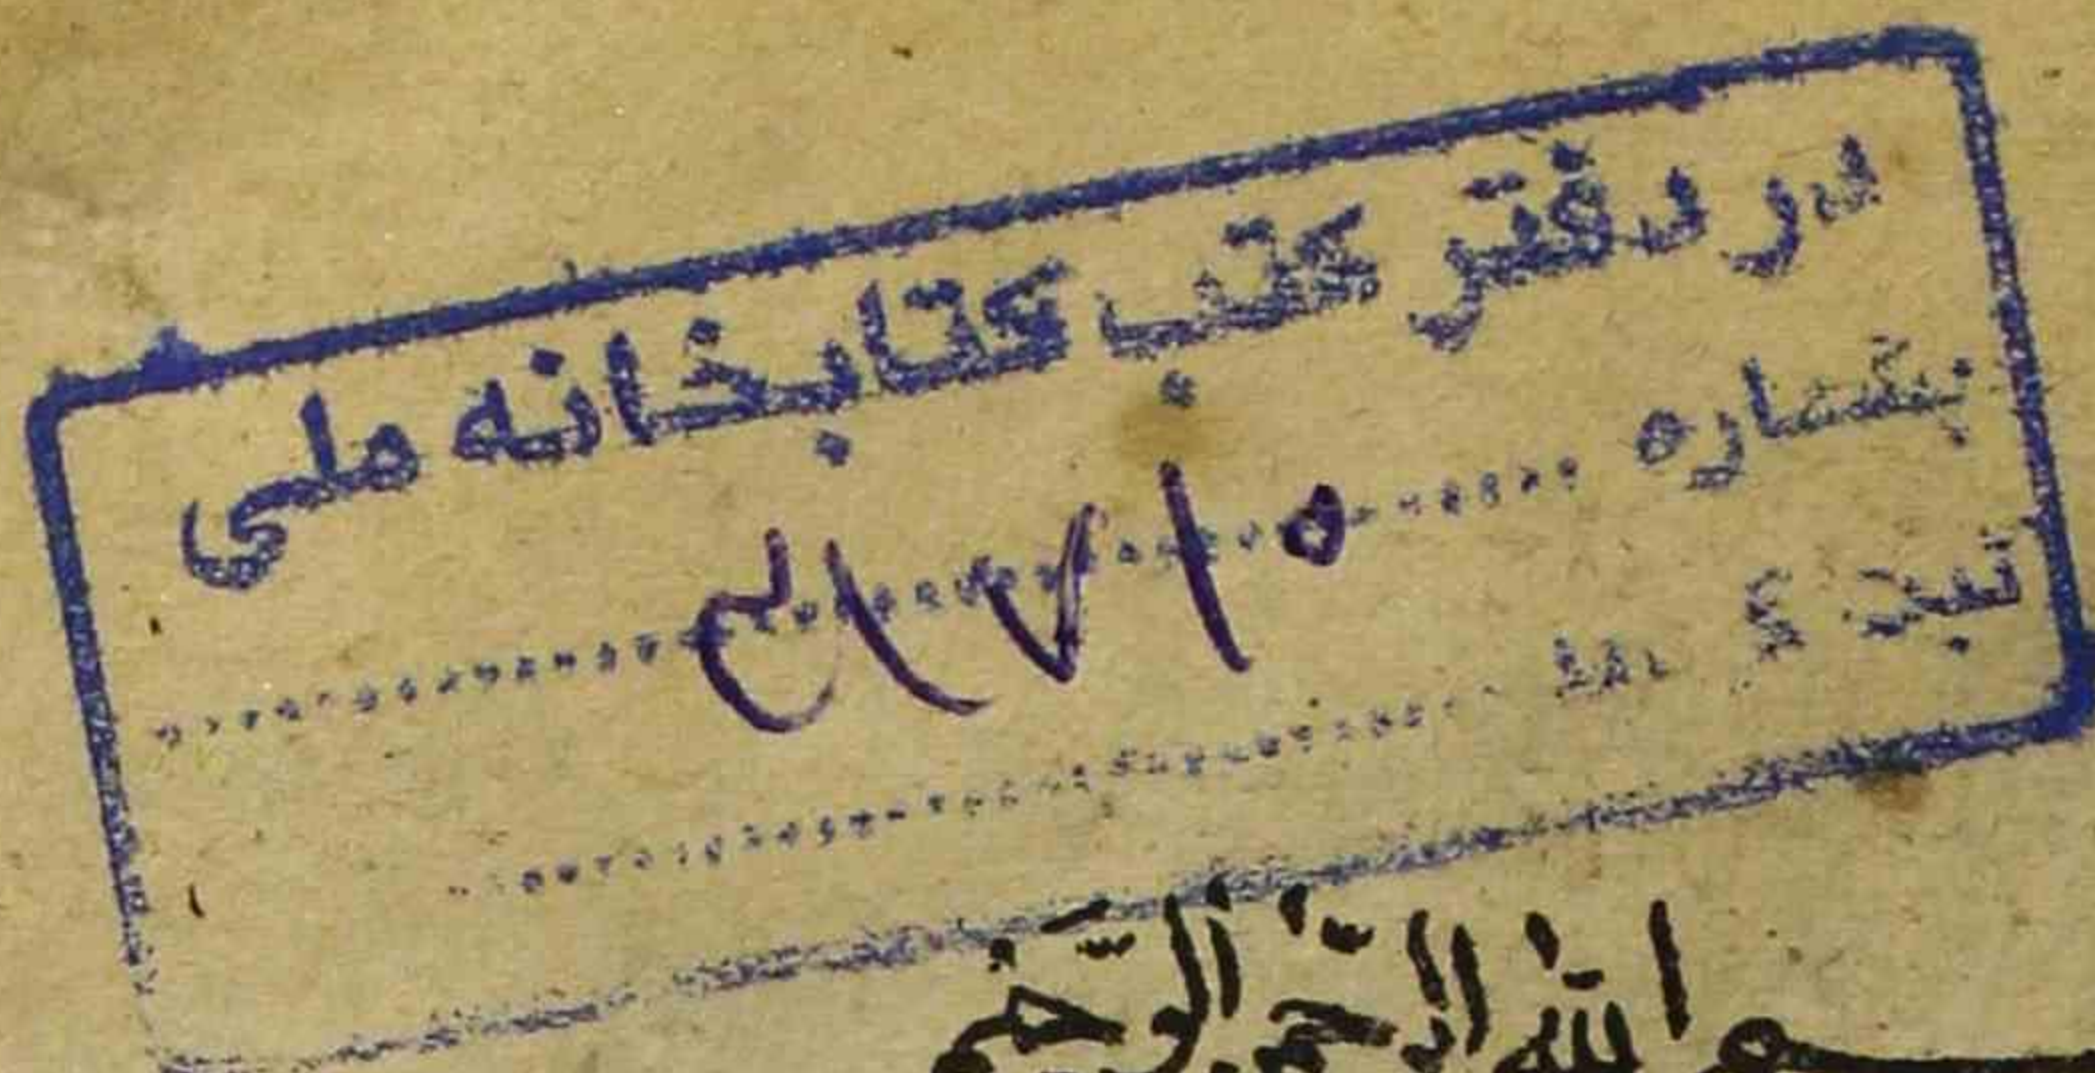 در دفتر کتب کتابخانه ملی
بشماره
ثبت
بسم الله الرحمن الرحیم